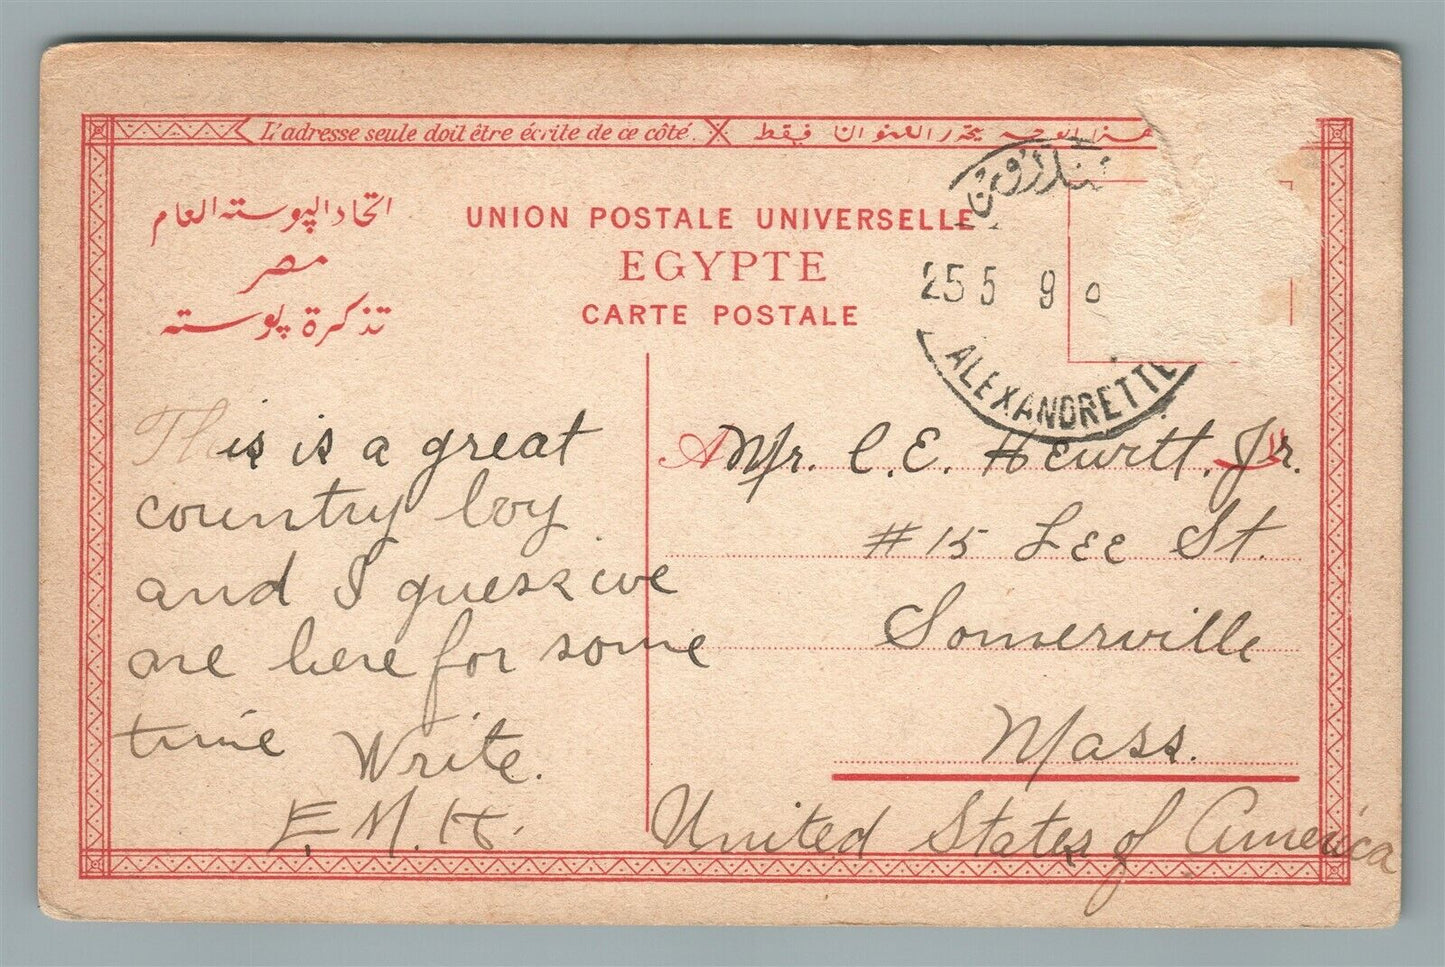 L'adresse seule doit être écrite de ce côté.
هذا الوجه يحرر العنوان فقط
اتحاد البوسته العام
مصر
تذكرة بوسته
UNION POSTALE UNIVERSELLE
EGYPTE
CARTE POSTALE
25 5 9
ALEXANDRETTE
This is a great
country boy
and I guess we
are here for some
time Write.
E. M. H.
A Mr. C. E. Hewitt, Jr.
# 15 Lee St.
Somerville
Mass.
United States of America